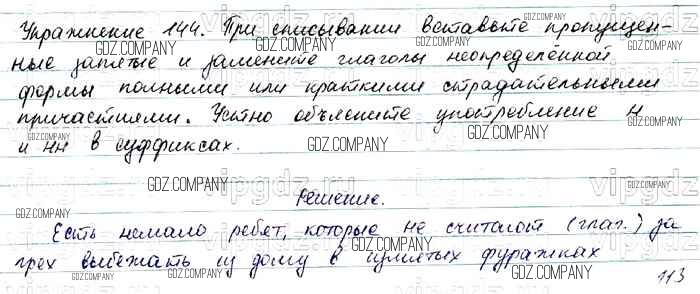 Упражнение 144. При списывании вставьте пропущен-
ные запятые и замените глаголы неопределённой
формы полными или краткими страдательными
причастиями. Устно объясните употребление н
и нн в суффиксах.
Решение.
Есть немало ребят, которые не считают (глаг.) за
грех выбежать из дому в измятых фуражках
113
GDZ.COMPANY
vipgdz.ru